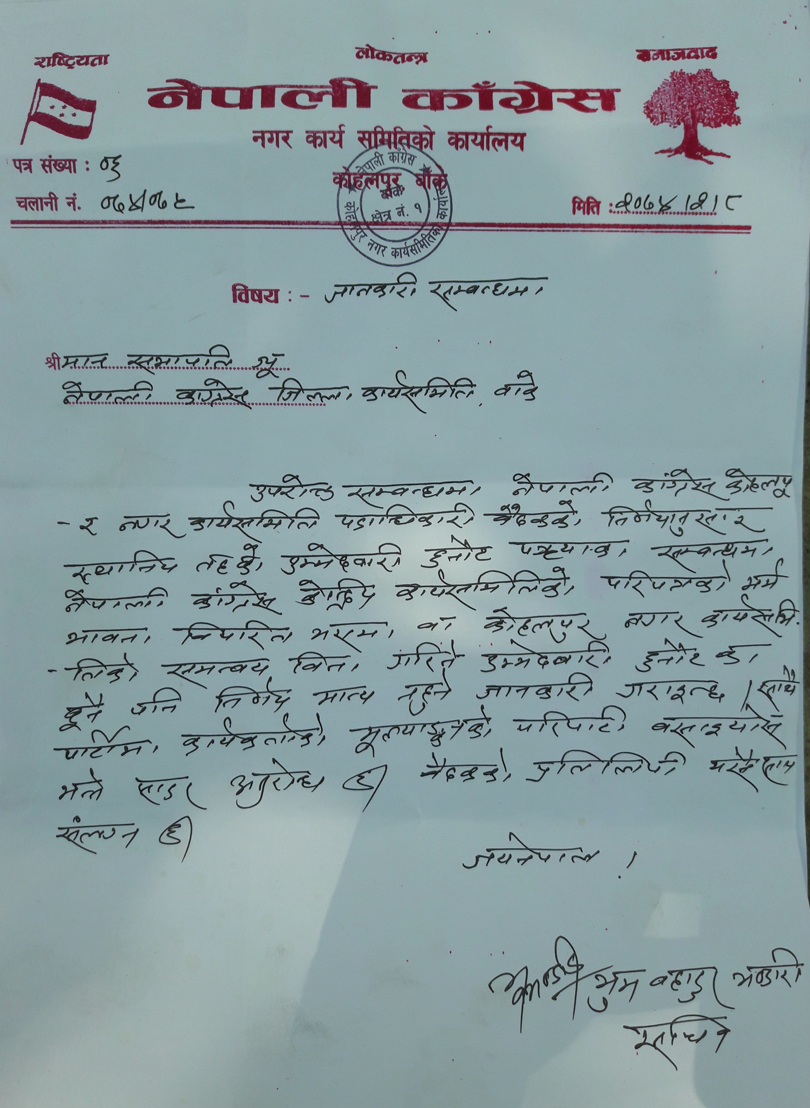 राष्ट्रियता लोकतन्त्र समाजवाद
नेपाली काँग्रेस
नगर कार्य समितिको कार्यालय
कोहलपुर बाँके
पत्र संख्या : ०६
चलानी नं. ०७४/०७५
मिति : २०७४।२।८
नेपाली काँग्रेस
बाँके
क्षेत्र नं. १
कोहलपुर नगर कार्यसमितिको कार्यालय
विषय :- जानकारी सम्बन्धमा।
श्रीमान सभापति ज्यू
नेपाली काग्रेस जिल्ला कार्यसमिति, बाँके
उपरोक्त सम्बन्धमा नेपाली कांग्रेस कोहलपू
-र नगर कार्यसमिति पदाधिकारी बैठकको निर्णयानुसार
स्थानिय तहको उम्मेदवारी छनौट सम्बन्धमा
नेपाली कांग्रेस केन्द्रिय कार्यसमितिको परिपत्रको मर्म
भावना विपरित भएमा वा कोहलपुर नगर कार्यसमि-
-तिको समन्वय विना गरिने उम्मेदवारी छनौट का
कुनै पनि निर्णय मान्य नहुने जानकारी गराइन्छ। साथै
पार्टीमा कार्यकर्ताको मूल्याङ्कनको परिपाटी बसाइयोस्
भन्ने सादर अनुरोध छ। बैठकको प्रतिलिपी यसैसाथ
संलग्न छ।
जयनेपाल।
भुम बहादुर भण्डारी
सचिव